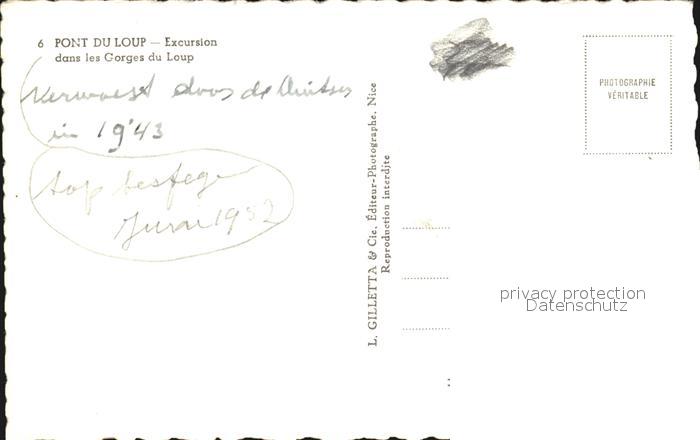 6 PONT DU LOUP — Excursion
dans les Gorges du Loup
Verwoest door de Duitsers
in 1943
1952
L. GILLETTA & Cie, Éditeur-Photographe, Nice
Reproduction interdite
PHOTOGRAPHIE
VÉRITABLE
privacy protection
Datenschutz